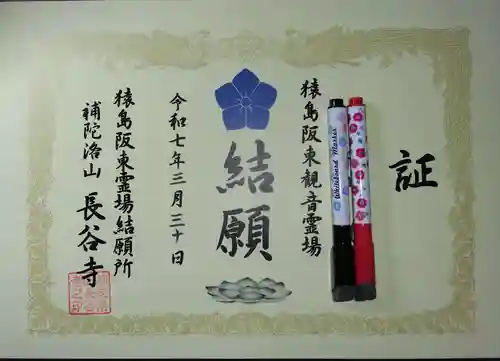 証
猿島阪東観音霊場
結願
令和七年三月三十日
猿島阪東霊場結願所
補陀洛山 長谷寺
Whiteboard Marker